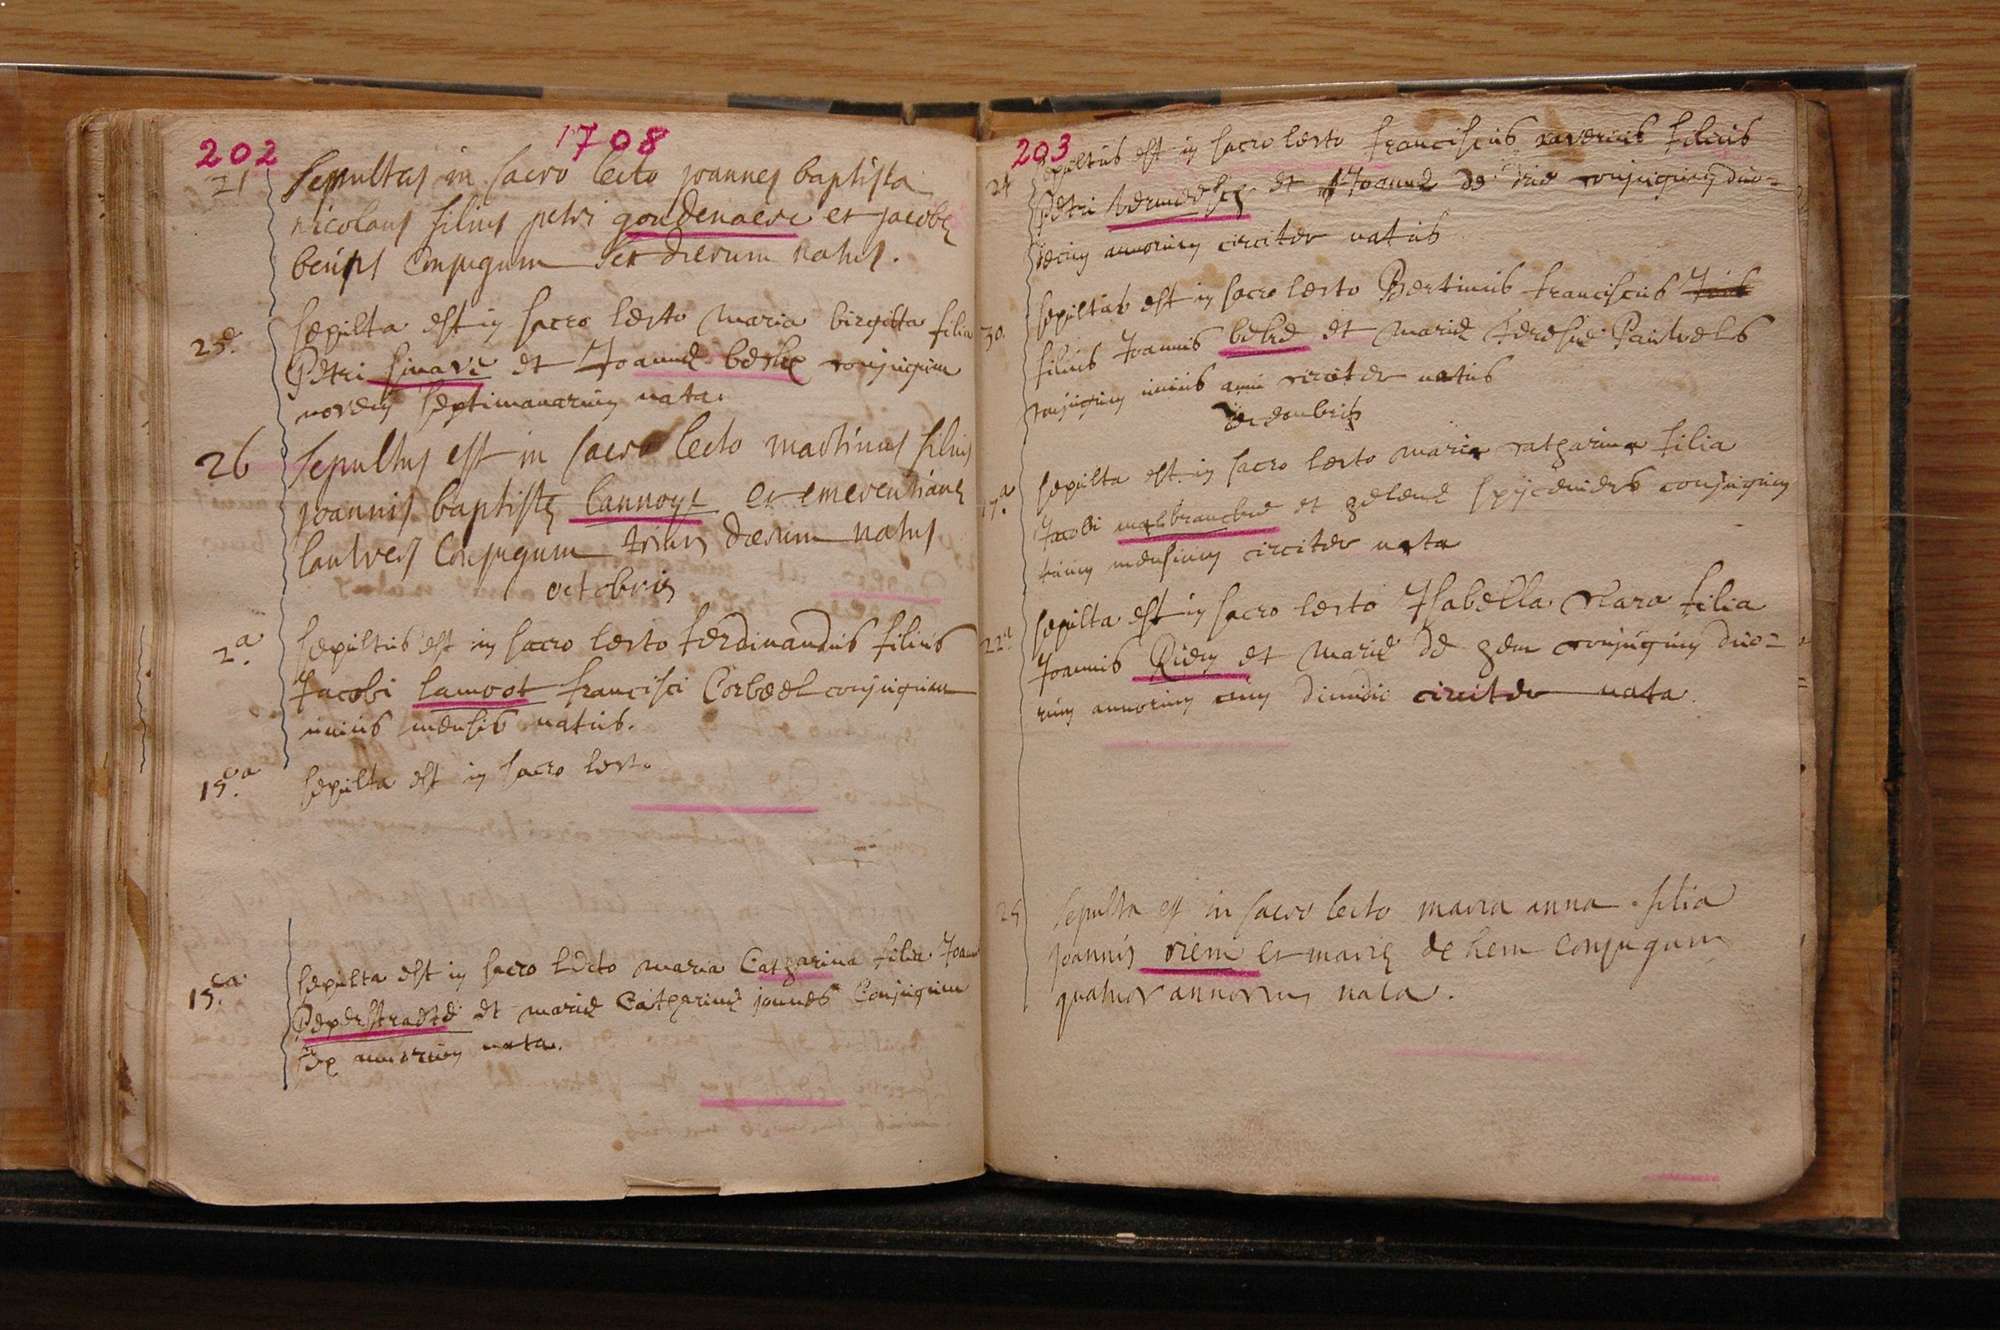 202
1708
21 Sepultus in sacro lecto joannes baptista
nicolaus filius petri goudenaere et jacobę
conjugum sex dierum natus.
25. sepulta est in sacro lecto maria birgitta filia
Petri sinave et Joannę beke conjugum
novem septimanarum nata.
26 sepultus est in sacro lecto martinus filius
joannis baptistę lannoye et emerentianę
lauwers conjugum trium dierum natus
octobris
2a. sepultus est in sacro lecto ferdinandus filius
Jacobi lamoot francisci Corbeel conjugum
unius mensis natus.
15a. sepulta est in sacro lect.
15a. sepulta est in sacro lecto maria Catharina filia Joann
Peperstraete et marię Catharinę jounes Conjugum
sex annorum nata.
203
24 sepultus est in sacro lecto franciscus xaverius filius
Petri et Joannę de conjugum duo=
decim annorum circiter natus
30. sepultus est in sacro lecto Bertinus franciscus
filius Joannis beke et marię teresię Pauwels
conjugum unius anni circiter natus
decembris
17a. sepulta est in sacro lecto maria catharina filia
Jacobi malebrancke et helenę conjugum
trium mensium circiter nata
22a sepulta est in sacro lecto Isabella clara filia
Joannis Riem et marię de hem conjugum duo=
rum annorum cum dimidio circiter nata.
25 sepulta est in sacro lecto maria anna filia
joannis riem et marię de hem conjugum
quatuor annorum nata.